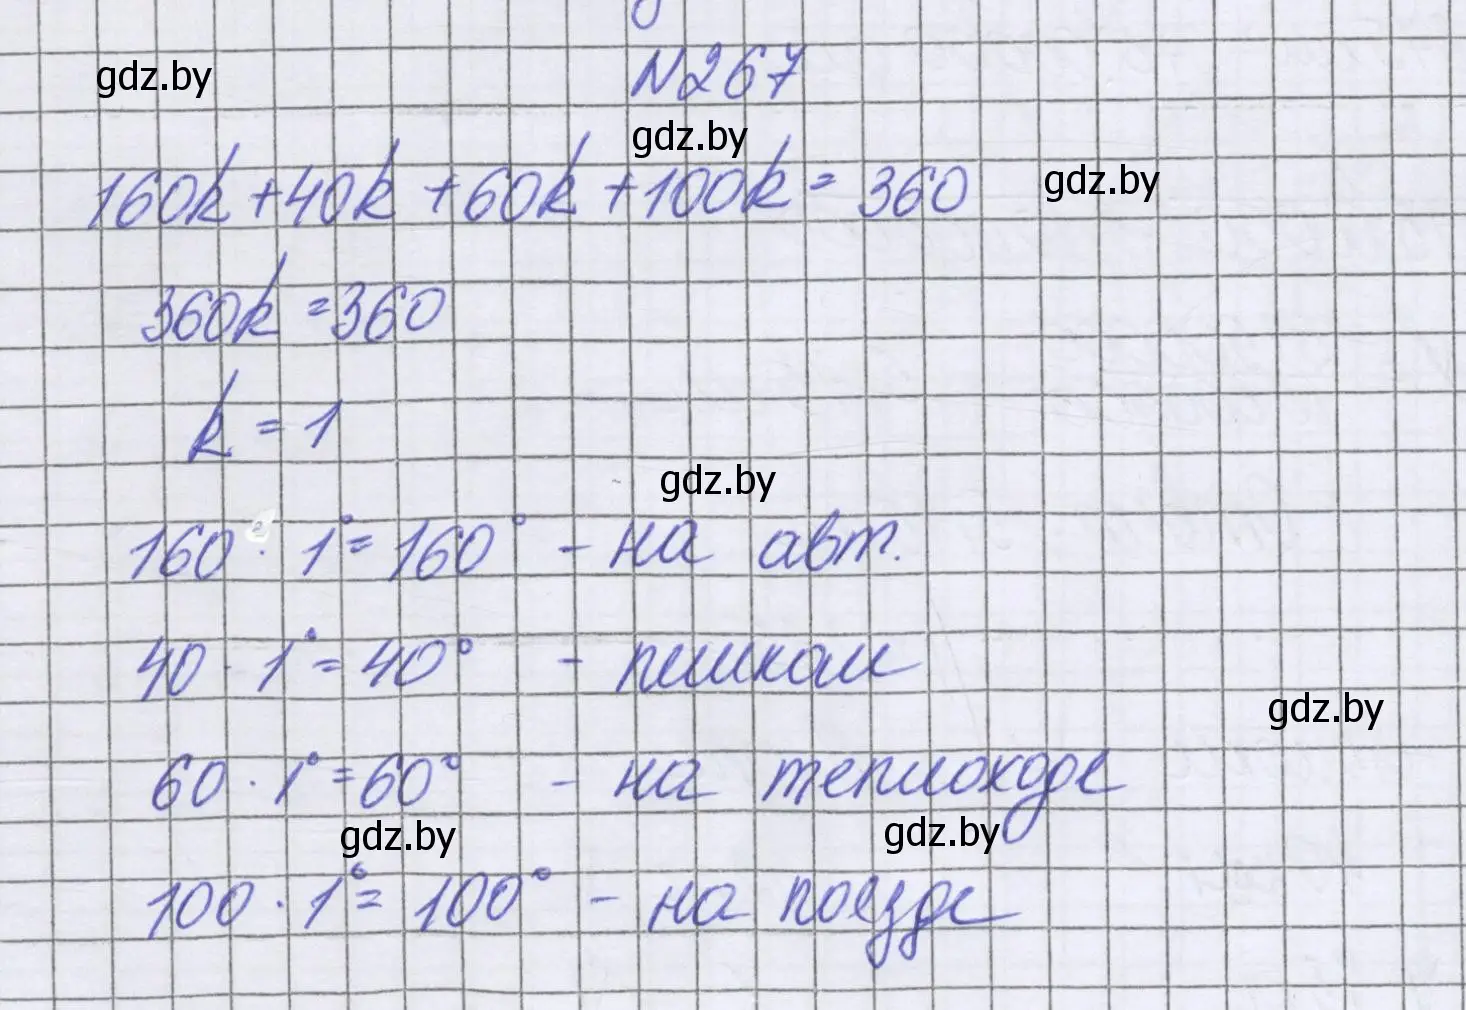 N267
gdz.by
gdz.by
160k+40k+60k+100k=360
gdz.by
360k=360
k=1
gdz.by
160·1°=160° - на авт.
40·1°=40° - пешком
gdz.by
60·1°=60° - на теплоходе
gdz.by
gdz.by
100·1°=100° - на поезде